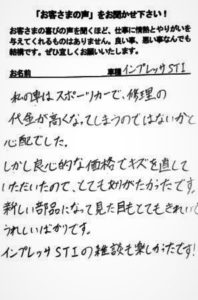 「お客さまの声」をお聞かせ下さい！
お客さまの喜びの声を聞くほど、仕事に情熱とやりがいを
与えてくれるものはありません。良い事、悪い事なんでも
結構です。ぜひ宜しくお願いいたします。
お名前 車種 インプレッサSTI
私の車はスポーツカーで、修理の
代金が高くなってしまうのではないかと
心配でした。
しかし良心的な価格でキズを直して
いただいたので、とても助かったです。
新しい部品になって見た目もとてもきれいで
うれしいばかりです。
インプレッサSTIの雑談も楽しかったです！